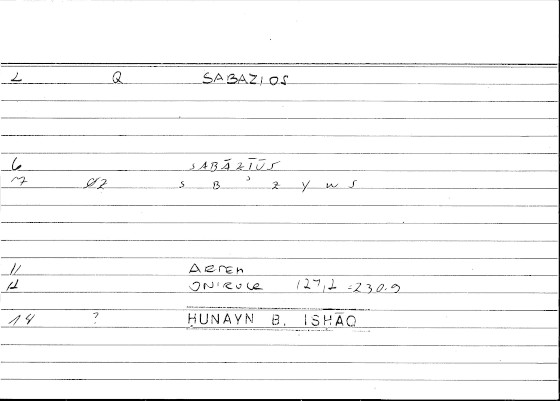 2 Q SABAZIOS
6 SABĀZĪŪS
7 02 s B ' z y w s
11 Artem
12 ONIROCR 127,2 = 230.9
14 ? ḤUNAYN B. ISḤĀQ